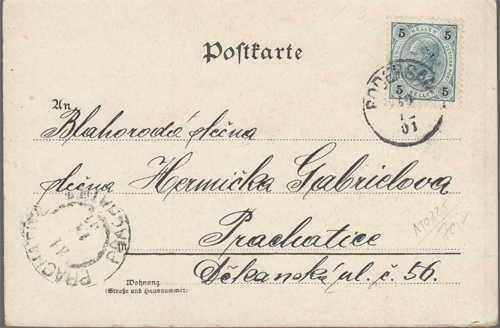 Postkarte
5 5
HELLER
5 5
PODERSAM
An
Blahorodá slečna
slečna Hermička Gabrielova
Prachatice
ul. č. 56.
Wohnung
(Straße und Hausnummer)
PRACHATITZ
PRACHATICE